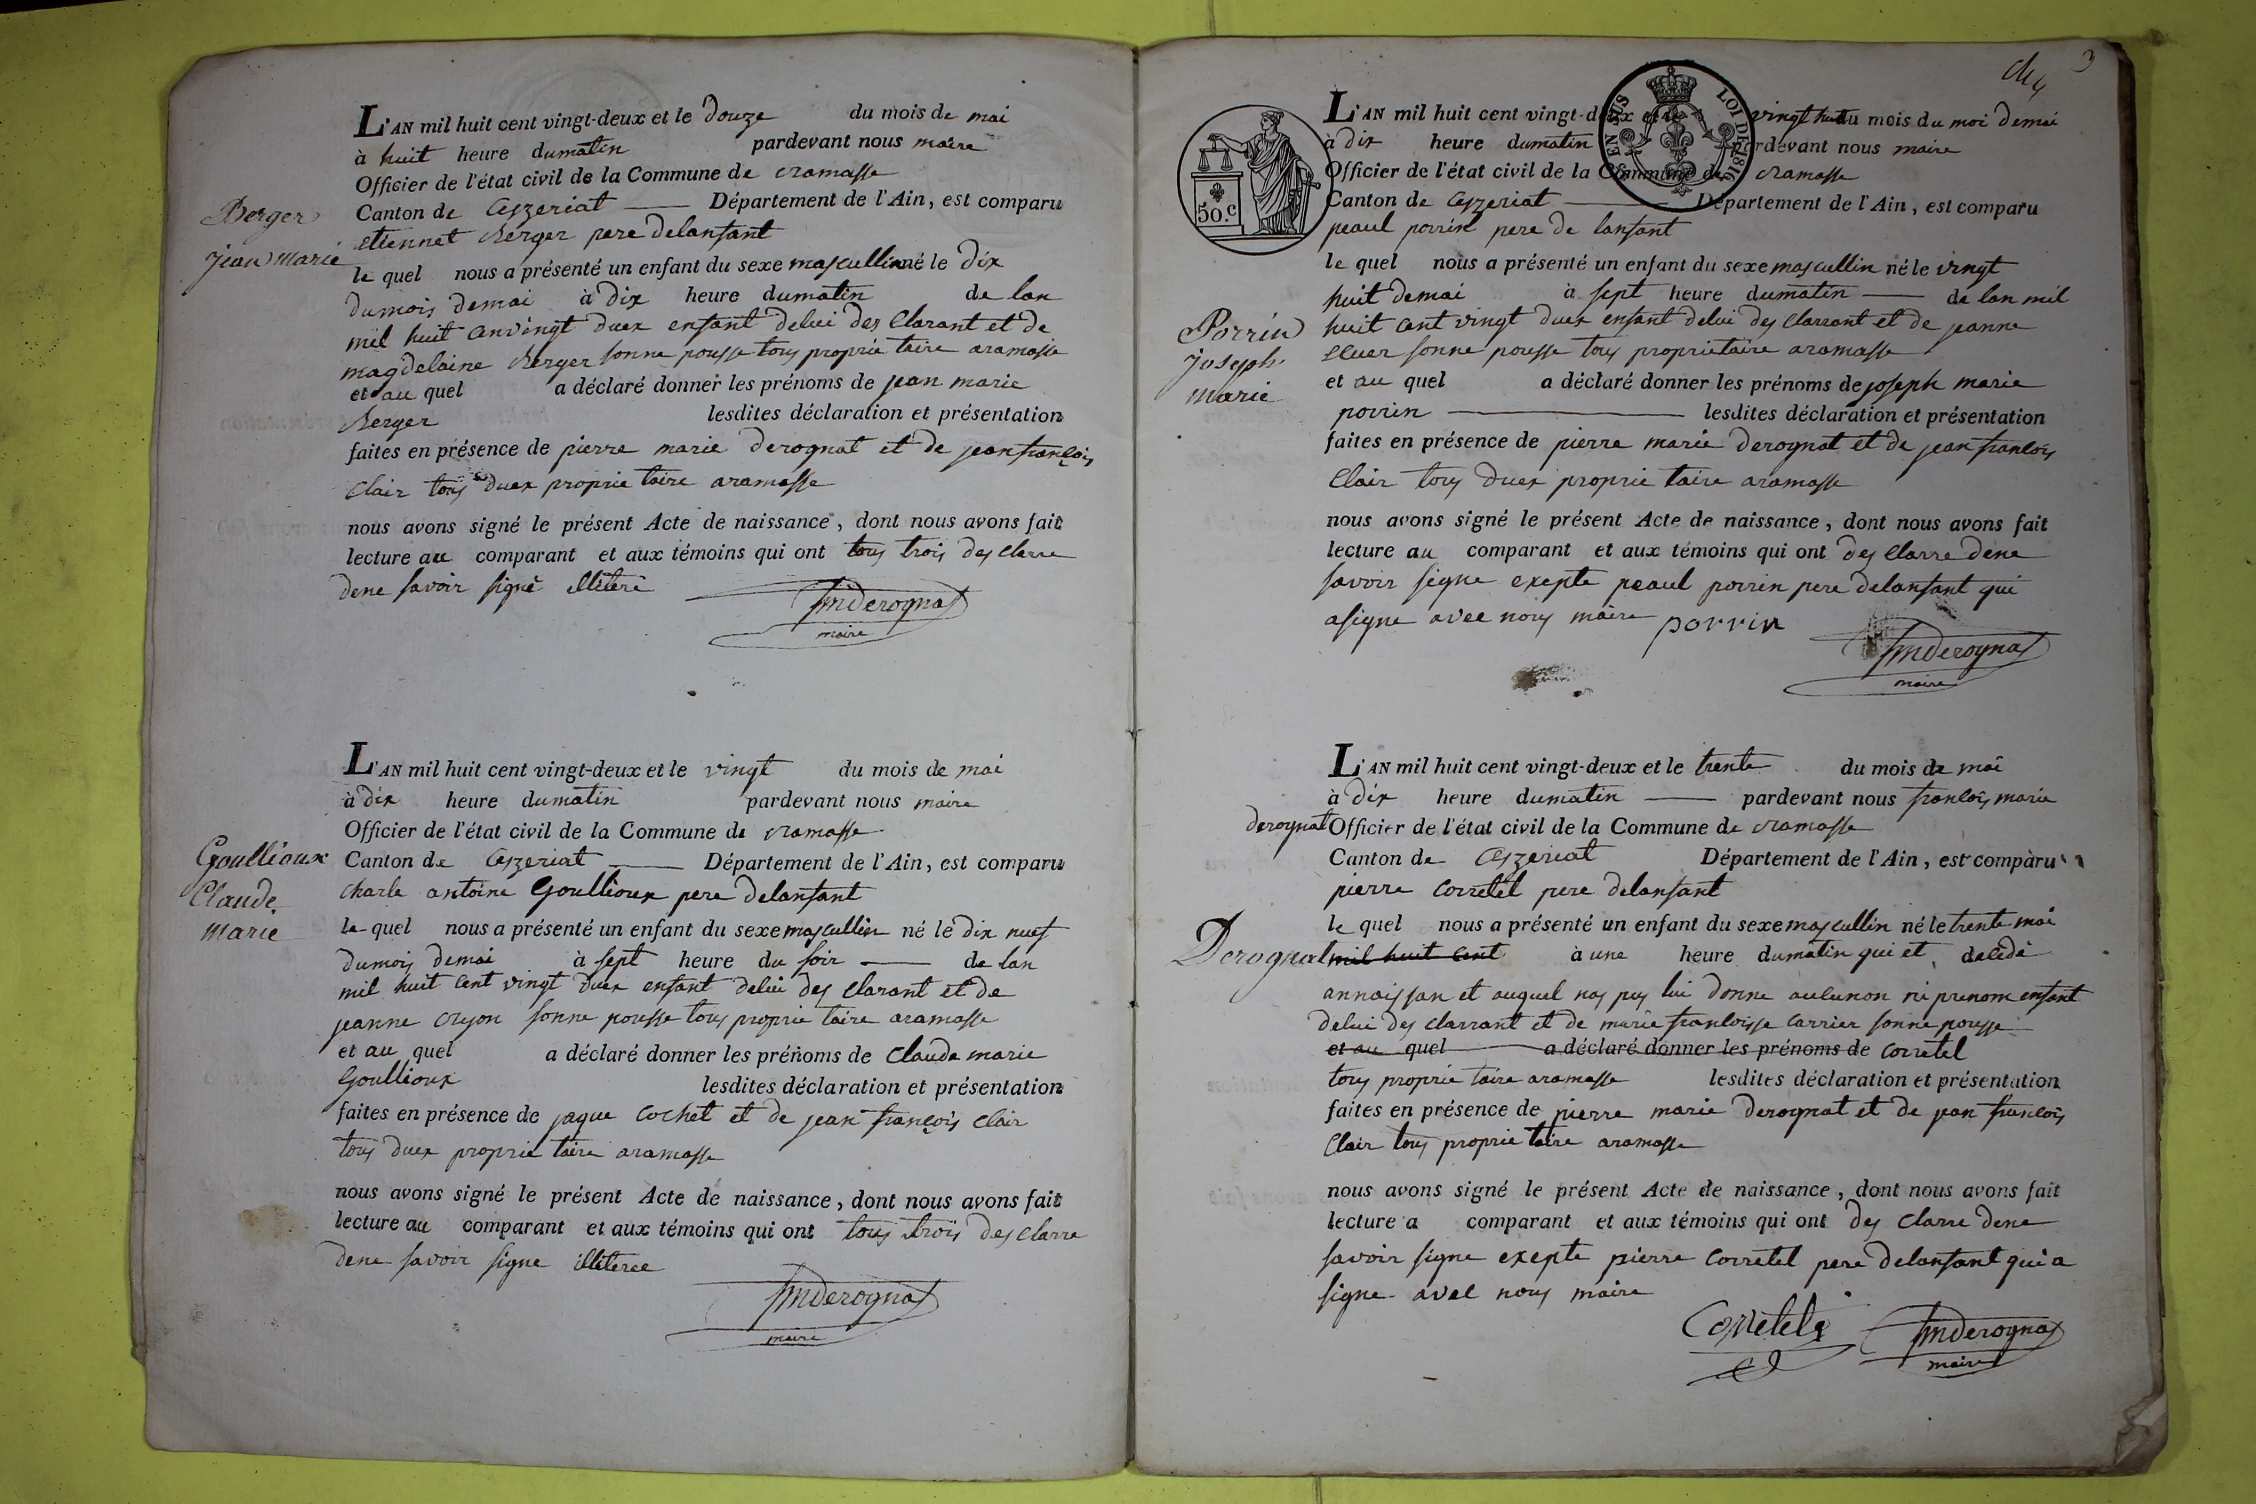 Berger
jean marie
L'AN mil huit cent vingt-deux et le douze du mois de mai
à huit heure dumatin pardevant nous maire
Officier de l'état civil de la Commune de cramasse
Canton de Ceyzeriat Département de l'Ain, est comparu
etiennet Berger pere delanfant
le quel nous a présenté un enfant du sexe mascullin né le dix
dumois demai à dix heure dumatin de lan
mil huit canvingt duex enfant delui des Clarant et de
magdelaine Berger sonne pousse tous proprie taire aramasse
et au quel a déclaré donner les prénoms de jean marie
Berger lesdites déclaration et présentation
faites en présence de pierre marie derognat et de jean françois
Clair tous duex proprie taire aramasse
nous avons signé le présent Acte de naissance, dont nous avons fait
lecture au comparant et aux témoins qui ont tous trois des Clarre
dene savoir signé illiteré
fmderognat
maire
Goullioux
Claude
marie
L'AN mil huit cent vingt-deux et le vingt du mois de mai
à dix heure dumatin pardevant nous maire
Officier de l'état civil de la Commune de cramasse
Canton de Ceyzeriat Département de l'Ain, est comparu
charle antoine Goullioux pere delanfant
le quel nous a présenté un enfant du sexe mascullin né le dix nuef
dumois demai à sept heure du soir de lan
mil huit cent vingt duex enfant delui des Clarant et de
jeanne sonne pousse tous proprie taire aramasse
et au quel a déclaré donner les prénoms de Claude marie
Goullioux lesdites déclaration et présentation
faites en présence de jaque Cochet et de jean françois Clair
tous duex proprie taire aramasse
nous avons signé le présent Acte de naissance, dont nous avons fait
lecture au comparant et aux témoins qui ont tous trois des Clarre
dene savoir signe illiteree
fmderognat
maire
3
50.C
EN SUS
LOI DE 1816
Porrin
Joseph
marie
L'AN mil huit cent vingt-deux et le vingt huit du mois du moi demai
à dix heure dumatin pardevant nous maire
Officier de l'état civil de la Commune de cramasse
Canton de Ceyzeriat Département de l'Ain, est comparu
peaul porrin pere de lanfant
le quel nous a présenté un enfant du sexe mascullin né le vingt
huit demai à sept heure dumatin de lan mil
huit cent vingt duex enfant delui des Clarrant et de jeanne
sonne pousse tous proprietaire aramasse
et au quel a déclaré donner les prénoms de joseph marie
porrin lesdites déclaration et présentation
faites en présence de pierre marie derognat et de jean francois
Clair tous duex proprie taire aramasse
nous avons signé le présent Acte de naissance, dont nous avons fait
lecture au comparant et aux témoins qui ont des Clarre dene
savoir signe exepte peaul porrin pere delanfant qui
asigne avec nous maire porrin
fmderognat
maire
L'AN mil huit cent vingt-deux et le trente du mois de mai
à dix heure dumatin pardevant nous francois marie
derognat Officier de l'état civil de la Commune de cramasse
Canton de Ceyzeriat Département de l'Ain, est comparu
pierre Corretel pere delanfant
le quel nous a présenté un enfant du sexe mascullin né le trente mai
Derognat mil huit cent à une heure dumatin qui et decedé
annaissan et auquel nas pus lui donne aucunon ni prenom enfant
delui des clarrant et de marie francoisse Carrier sonne pousse
et au quel a déclaré donner les prénoms de Corretel
tous proprie taire aramasse lesdites déclaration et présentation
faites en présence de pierre marie derognat et de jean francois
Clair tous proprie taire aramasse
nous avons signé le présent Acte de naissance, dont nous avons fait
lecture a comparant et aux témoins qui ont des Clarre dene
savoir signe exepte pierre Corretel pere delanfant qui a
signe avec nous maire
Corretel
fmderognat
maire